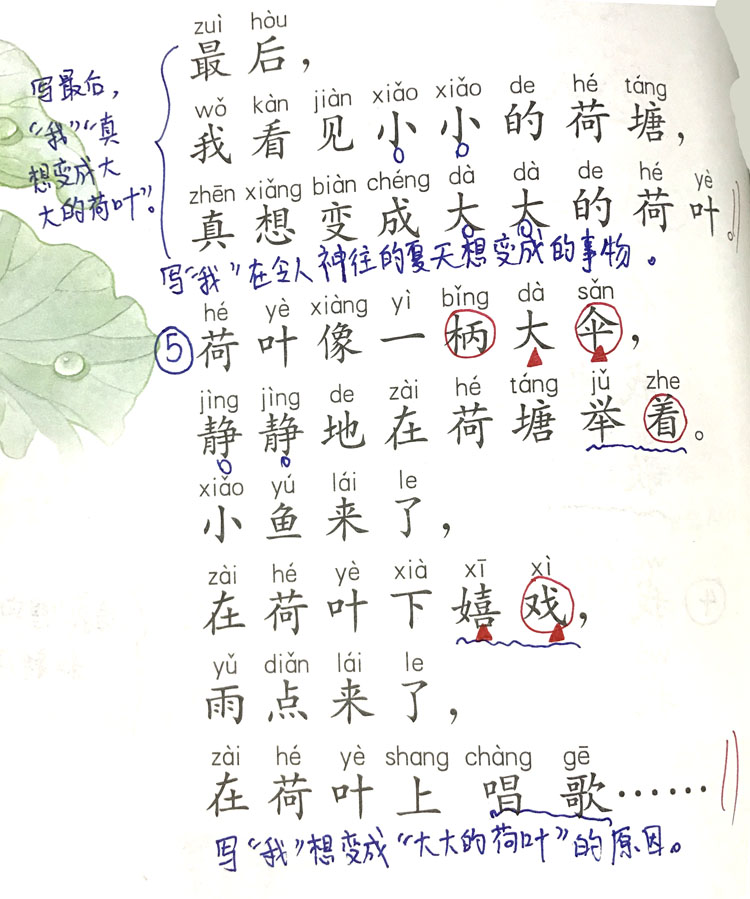 zuì hòu
最后，
写最后，
“我”“真
想变成大
大的荷叶”。
wǒ kàn jiàn xiǎo xiǎo de hé táng
我看见小小的荷塘，
zhēn xiǎng biàn chéng dà dà de hé yè
真想变成大大的荷叶。
写“我”在令人神往的夏天想变成的事物。
hé yè xiàng yì bǐng dà sǎn
⑤荷叶像一柄大伞，
jìng jìng de zài hé táng jǔ zhe
静静地在荷塘举着。
xiǎo yú lái le
小鱼来了，
zài hé yè xià xī xì
在荷叶下嬉戏，
yǔ diǎn lái le
雨点来了，
zài hé yè shang chàng gē
在荷叶上唱歌……
写“我”想变成“大大的荷叶”的原因。